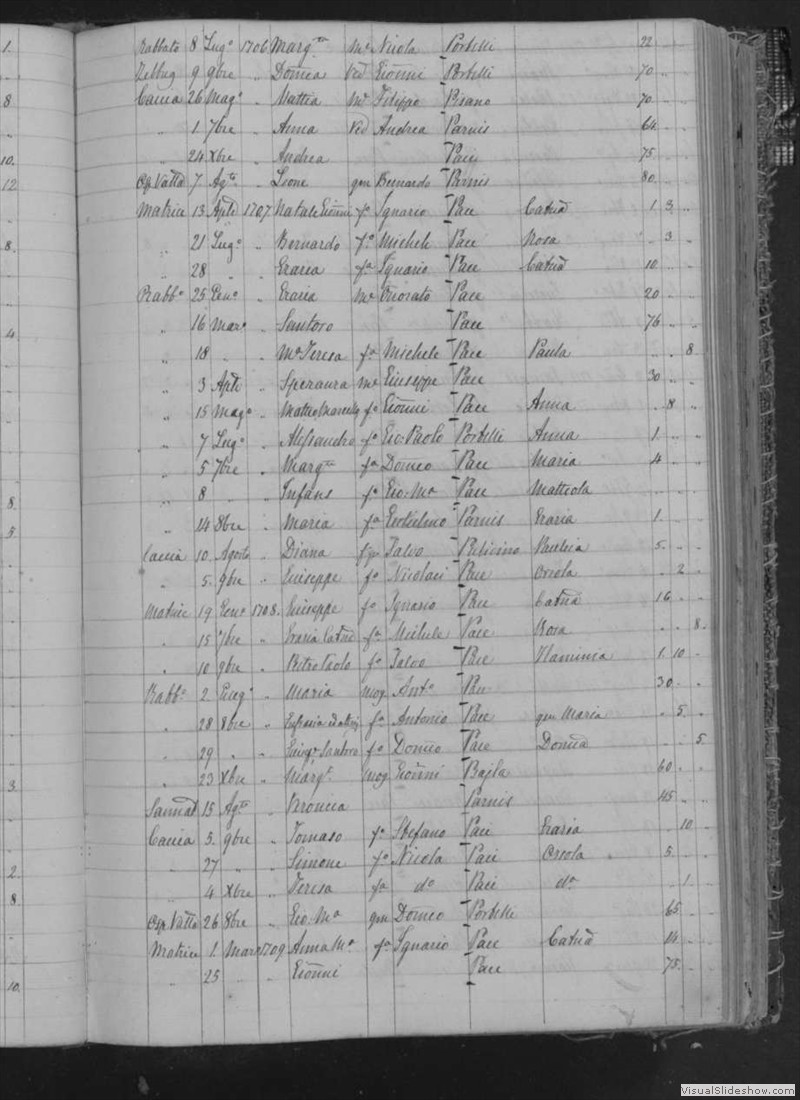 1.
8
10.
12
8.
4
8.
5
3
2.
8
10.
Rabbato 8 Lug.o 1706 Marg.ta M.e Nicola Portelli 22
Zebbug 9 9bre " Domca Ved Giõnni Portelli 70
Caccia 26 Mag.o " Mattia M.e Filippo Pisano 70
" 1 7bre " Anna Ved Andrea Parnis 64
" 24 Xbre " Andrea Pace 75
Osp. Vatta 7 Ag.to " Leone qm Bernardo Parnis 80
Matrice 13 Aple 1707 Natale Giõnni f.o Ignazio Pace Catnã 1 3
" 21 Lug.o " Bernardo f.o Michele Pace Rosa " 3
" 28 " Grazia f.a Ignazio Pace Catnã 10
Rabb.o 25 Gen.o " Grazia M.e Onorato Pace 20
" 16 Mar.o " Santoro Pace 76
" 18 " M.a Teresa f.a Michele Pace Paula " " 8
" 3 Aple " Speranza M.e Giuseppe Pace 30
" 15 Mag.o " Matteo f.o Giõnni Pace Anna " 8
" 7 Lug.o " Alessandro f.o Gio: Paolo Portelli Anna 1
" 5 7bre " Marg.ta f.a Domco Pace Maria 4
" 8 " Infans f.o Gio: M.a Pace Matteola
" 14 8bre " Maria f.a Guglielmo Parnis Grazia 1
Caccia 10 Agosto " Diana Salvo 5
" 5 9bre " Giuseppe f.o Nicolaci Pace Orsola " 2
Matrice 19 Gen.o 1708. Giuseppe f.o Ignazio Pace Catnã 16
" 15 7bre " Grazia Catnã f.a Michele Pace Rosa " " 8
" 10 9bre " Pietro Paolo f.o Salvo Pace Flaminia 1 10
Rabb.o 2 Giug.o " Maria mog Ant.o Pace 30
" 28 8bre " f.a Antonio Pace qm Maria " 5
" 29 " " Santoro f.o Domco Pace Domcã " " 5
" 23 Xbre " Marg.t mog Giõnni Bajla 60
Sannat 15 Ag.to " Bronica Parnis 45
Caccia 5 9bre " Tomaso f.o Stefano Pace Grazia " 10
" 27 " " Simone f.o Nicola Pace Orsola 5
" 4 Xbre " Teresa f.a d.o Pace d.a " 1
Osp. Vatta 26 8bre " Gio: M.a qm Domco Portelli 65
Matrice 1 Marz 1709 Anna M.a f.a Ignazio Pace Catnã 14
" 25 " " Giõnni Pace 75
VisualSlideshow.com